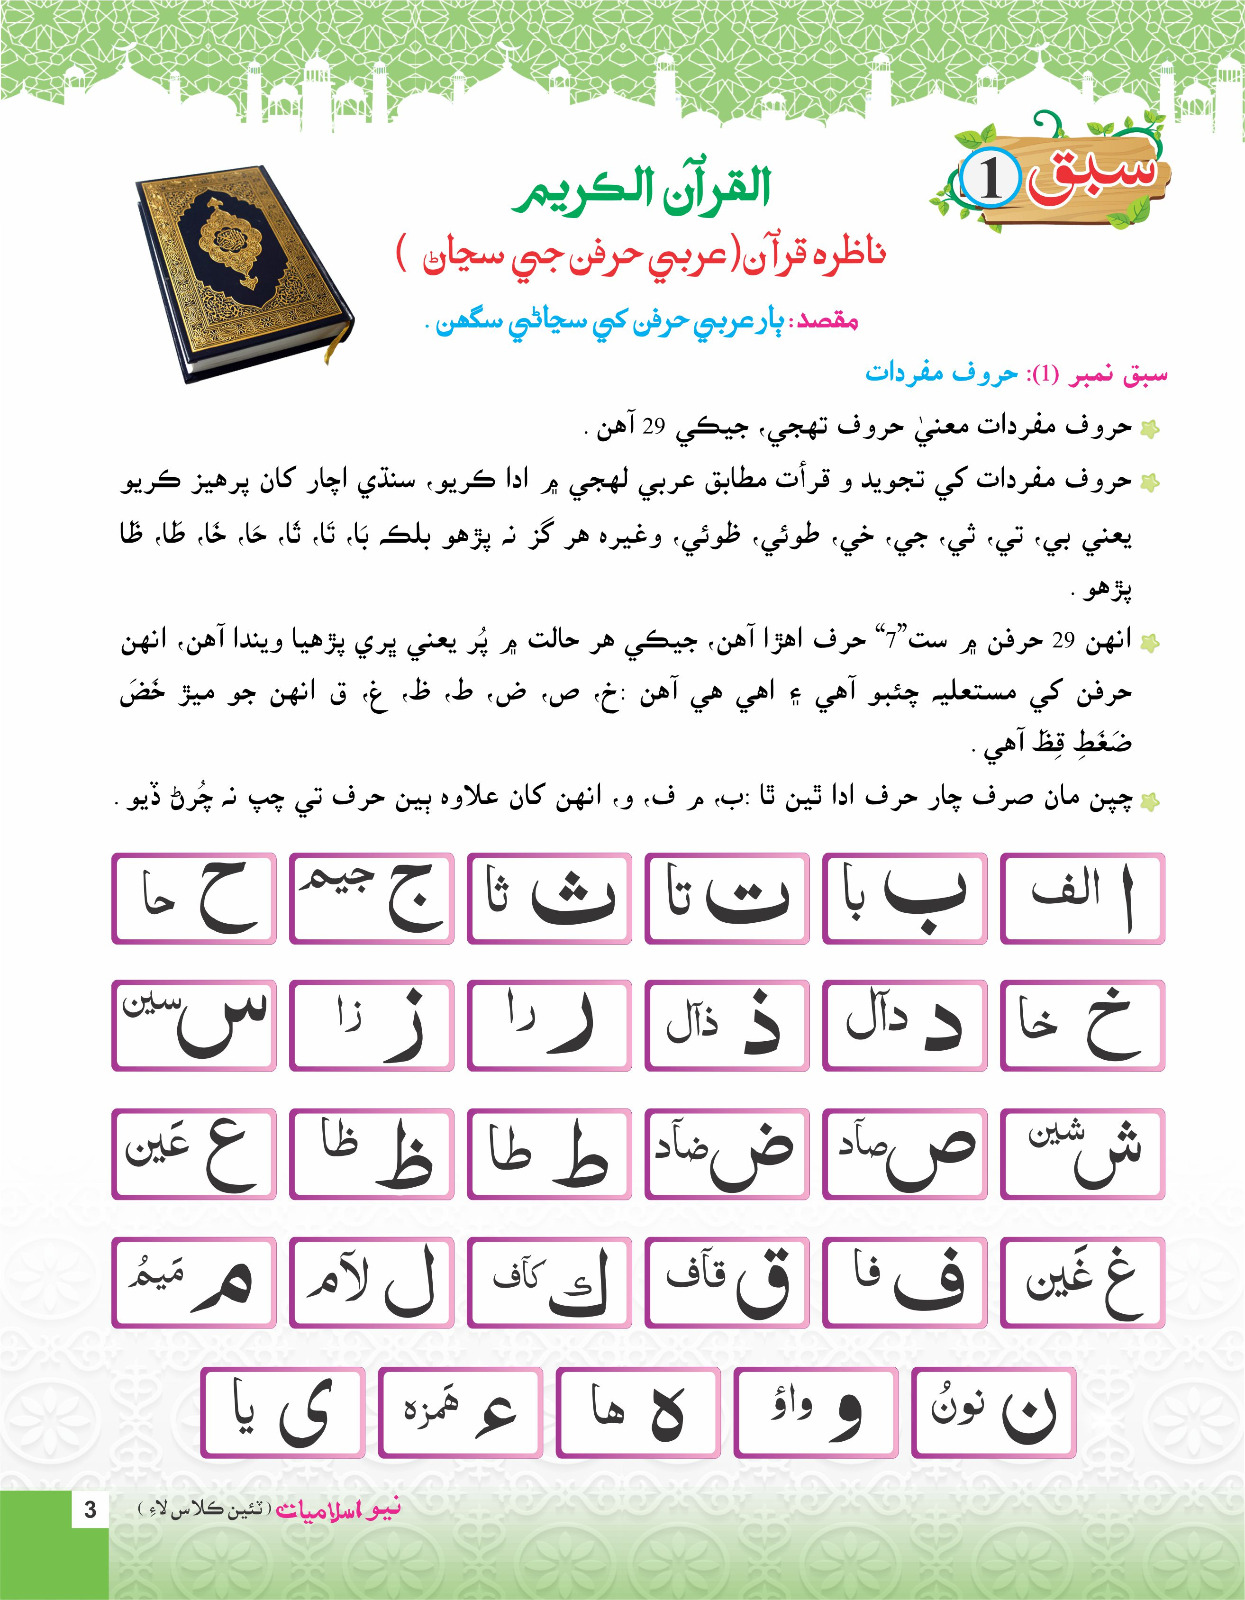 سبق 1
القرآن الكريم
ناظره قرآن (عربي حرفن جي سڃاڻ )
مقصد: ٻار عربي حرفن کي سڃاڻي سگهن .
سبق نمبر (1): حروف مفردات
حروف مفردات معنيٰ حروف تهجي، جيڪي 29 آهن .
حروف مفردات کي تجويد و قرأت مطابق عربي لهجي ۾ ادا ڪريو، سنڌي اچار کان پرهيز ڪريو
يعني بي، تي، ثي، جي، خي، طوئي، ظوئي، وغيره هر گز نه پڙهو بلڪ بَا، تَا، ثَا، حَا، خَا، طَا، ظَا
پڙهو .
انهن 29 حرفن ۾ ست”7“ حرف اهڙا آهن، جيڪي هر حالت ۾ پُر يعني ڀري پڙهيا ويندا آهن، انهن
حرفن کي مستعليه چئبو آهي ۽ اهي هي آهن :خ، ص، ض، ط، ظ، غ، ق انهن جو ميڙ خَضَ
ضَغَطِ قِظَ آهي .
چپن مان صرف چار حرف ادا ٿين ٿا :ب، م ف، و، انهن کان علاوه ٻين حرف تي چپ نہ چُرڻ ڏيو .
ا الف ب با ت تا ث ثا ج جيم ح حا
خ خا د دآل ذ ذآل ر را ز زا س سين
ش شين ص صآد ض ضآد ط طا ظ ظا ع عَين
غ غَين ف فا ق قآف ك كآف ل لآم م مَيمُ
ن نونُ و واؤ ه ها ء هَمزه ى يا
نيو اسلاميات ( ٽئين ڪلاس لاءِ )
3